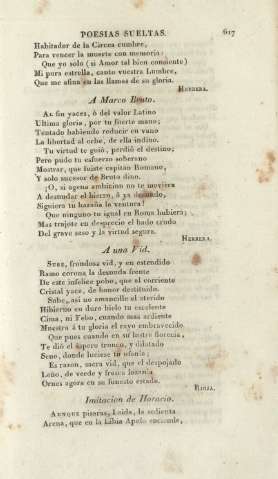 POESIAS SUELTAS. 617
Habitador de la Circea cumbre,
Para vencer la muerte con memoria:
Que yo solo (si Amor tal bien consiente)
Mi pura estrella, canto vuestra Lumbre,
Que me afina en las llamas de su gloria.
HERRERA.
A Marco Bruto.
AL fin yaces, ó del valor Latino
Ultima gloria, por tu fuerte mano;
Tentado habiendo reducir en vano
La libertad al orbe, de ella indino.
Tu virtud te guió, perdió el destino;
Pero pudo tu esfuerzo soberano
Mostrar, que fuiste capitan Romano,
Y solo sucesor de Bruto dino.
¡O, si agena ambicion no te moviera
A desnudar el hierro, ó ya desnudo,
Siguiera tu hazaña la ventura!
Que ninguno tu igual en Roma hubiera;
Mas trajote en desprecio el hado crudo
Del grave seso y la virtud segura.
HERRERA.
A una Vid.
SUBE, frondosa vid, y en estendido
Ramo corona la desnuda frente
De este infelice pobo, que el corriente
Cristal yace, de honor destituido.
Sube, así no amancille el aterido
Hibierno en duro hielo tu excelente
Cima, ni Febo, cuando mas ardiente
Muestra á tu gloria el rayo embravecido
Que pues cuando en su lustre florecia,
Te dió el áspero tronco, y dilatado
Seno, donde lucias tu ufanía;
Es razon, sacra vid, que el despojado
Leño, de verde y fresca lozanía
Ornes agora en su funesto estado.
RIOJA.
Imitacion de Horacio.
AUNQUE pisaras, Laida, la sedienta
Arena, que en la Libia Apolo enciende,